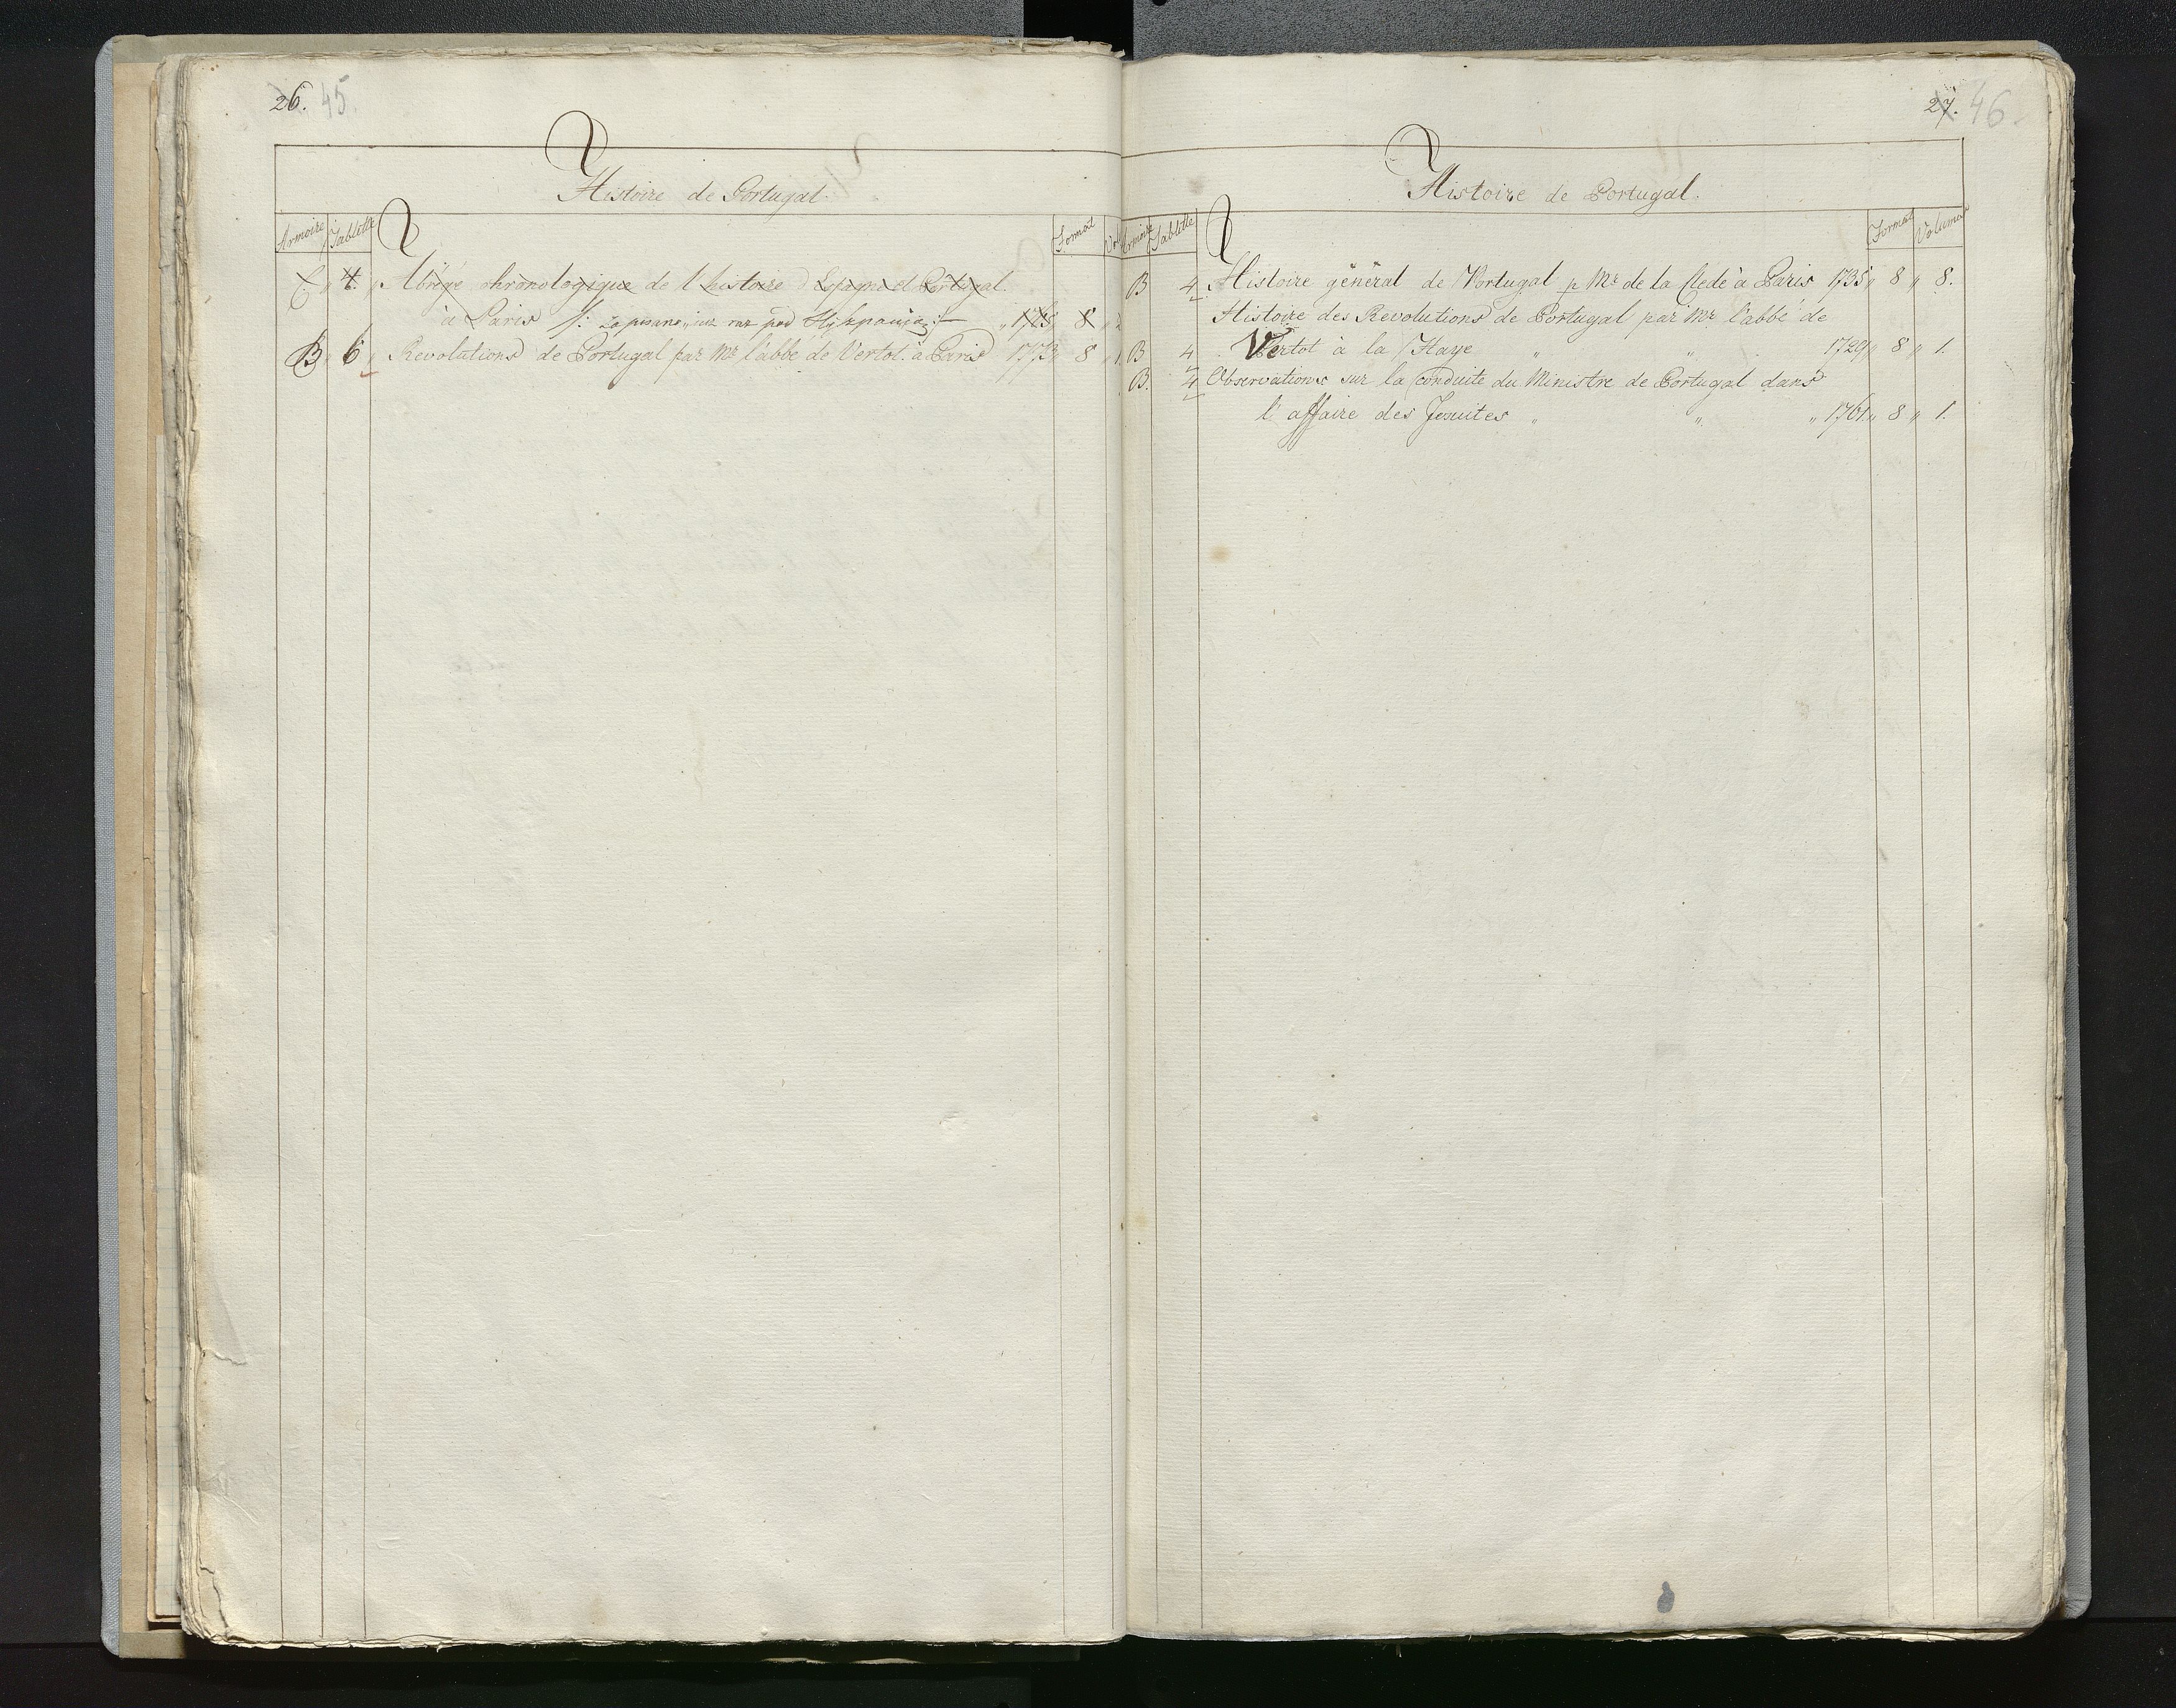 26. 45.
Histoire de Portugal.
Armoire Tablette Format Vol
C „ 4. „ Abregé chronologique de l'histoire d'Espagne et Portugal
à Paris /: zapisane już raz pod Hiszpanią :/ „ 1765 „ 8 „
B „ 6 „ Revolutions de Portugal par Mr l'abbé de Vertot. à Paris 1773 „ 8 „ 1.
27. 46.
Histoire de Portugal.
Armoire Tablette Format Volume
B 4 Histoire général de Portugal p Mr de la Clede à Paris 1735 „ 8 „ 8.
Histoire des Revolutions de Portugal par Mr l'abbé de
B 4 Vertot à la Haye „ „ 1729 „ 8 „ 1.
B. 4 Observations sur la conduite du Ministre de Portugal dans
l'affaire des Jesuites „ „ „ 1761 „ 8 „ 1.